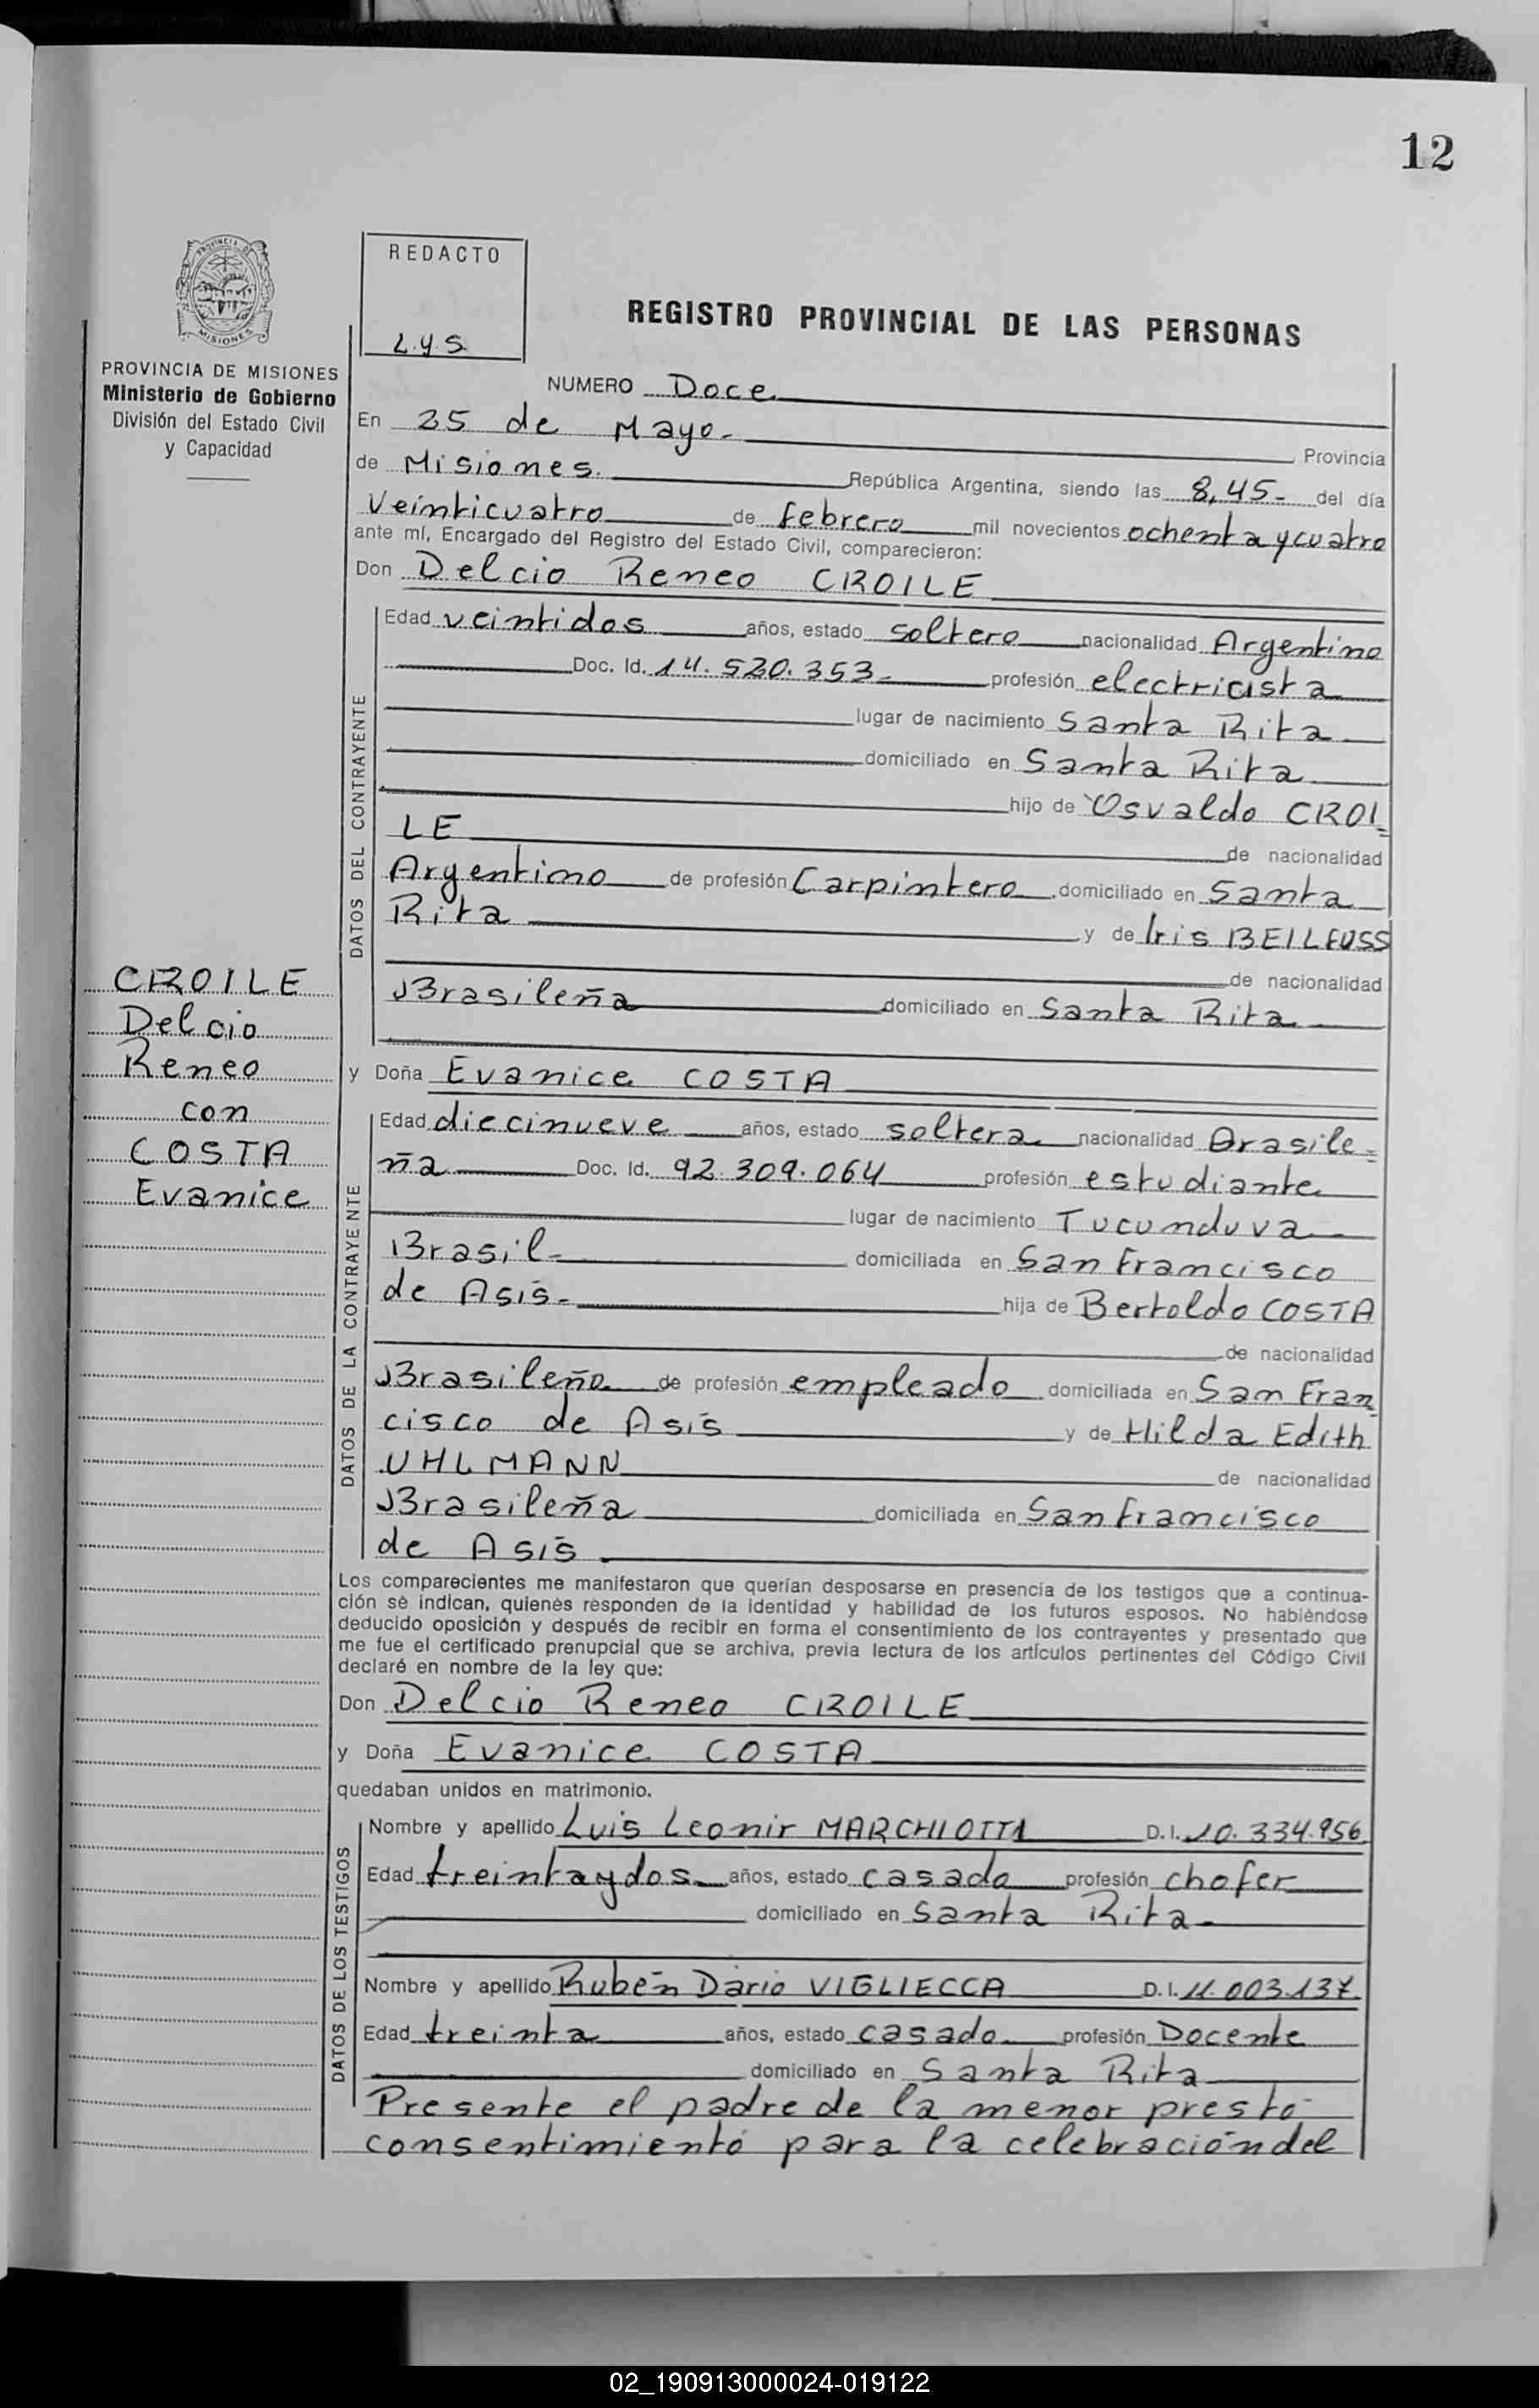 12
REDACTO
L.y.S.
PROVINCIA DE MISIONES
Ministerio de Gobierno
División del Estado Civil
y Capacidad
REGISTRO PROVINCIAL DE LAS PERSONAS
NUMERO Doce
En 25 de Mayo- Provincia
de Misiones. República Argentina, siendo las 8,45- del día
Veinticuatro de febrero mil novecientos ochenta y cuatro
ante mí, Encargado del Registro del Estado Civil, comparecieron:
Don Delcio Reneo CROILE
DATOS DEL CONTRAYENTE
Edad veintidos años, estado soltero nacionalidad Argentino
Doc. Id. 14.520.353- profesión electricista
lugar de nacimiento Santa Rita
domiciliado en Santa Rita
hijo de Osvaldo CROI=
LE de nacionalidad
Argentino de profesión Carpintero domiciliado en Santa
Rita y de Iris BEILFUSS
de nacionalidad
Brasileña domiciliado en Santa Rita
CROILE
Delcio
Reneo
con
COSTA
Evanice
y Doña Evanice COSTA
DATOS DE LA CONTRAYENTE
Edad diecinueve años, estado soltera nacionalidad Brasile=
ña Doc. Id. 92.309.064 profesión estudiante
lugar de nacimiento Tucunduva
Brasil- domiciliada en San Francisco
de Asis- hija de Bertoldo COSTA
de nacionalidad
Brasileño de profesión empleado domiciliada en San Fran=
cisco de Asís y de Hilda Edith
UHLMANN de nacionalidad
Brasileña domiciliada en San Francisco
de Asís
Los comparecientes me manifestaron que querían desposarse en presencia de los testigos que a continua-
ción se indican, quienes responden de la identidad y habilidad de los futuros esposos. No habiéndose
deducido oposición y después de recibir en forma el consentimiento de los contrayentes y presentado que
me fue el certificado prenupcial que se archiva, previa lectura de los artículos pertinentes del Código Civil
declaré en nombre de la ley que:
Don Delcio Reneo CROILE
y Doña Evanice COSTA
quedaban unidos en matrimonio.
DATOS DE LOS TESTIGOS
Nombre y apellido Luis Leonir MARCHIOTTI D.I. 10.334.956
Edad treinta y dos años, estado casado profesión chofer
domiciliado en Santa Rita
Nombre y apellido Rubén Dario VIGLIECCA D.I. 11.003.137
Edad treinta años, estado casado profesión Docente
domiciliado en Santa Rita
Presente el padre de la menor prestó
consentimiento para la celebración del
02_190913000024-019122